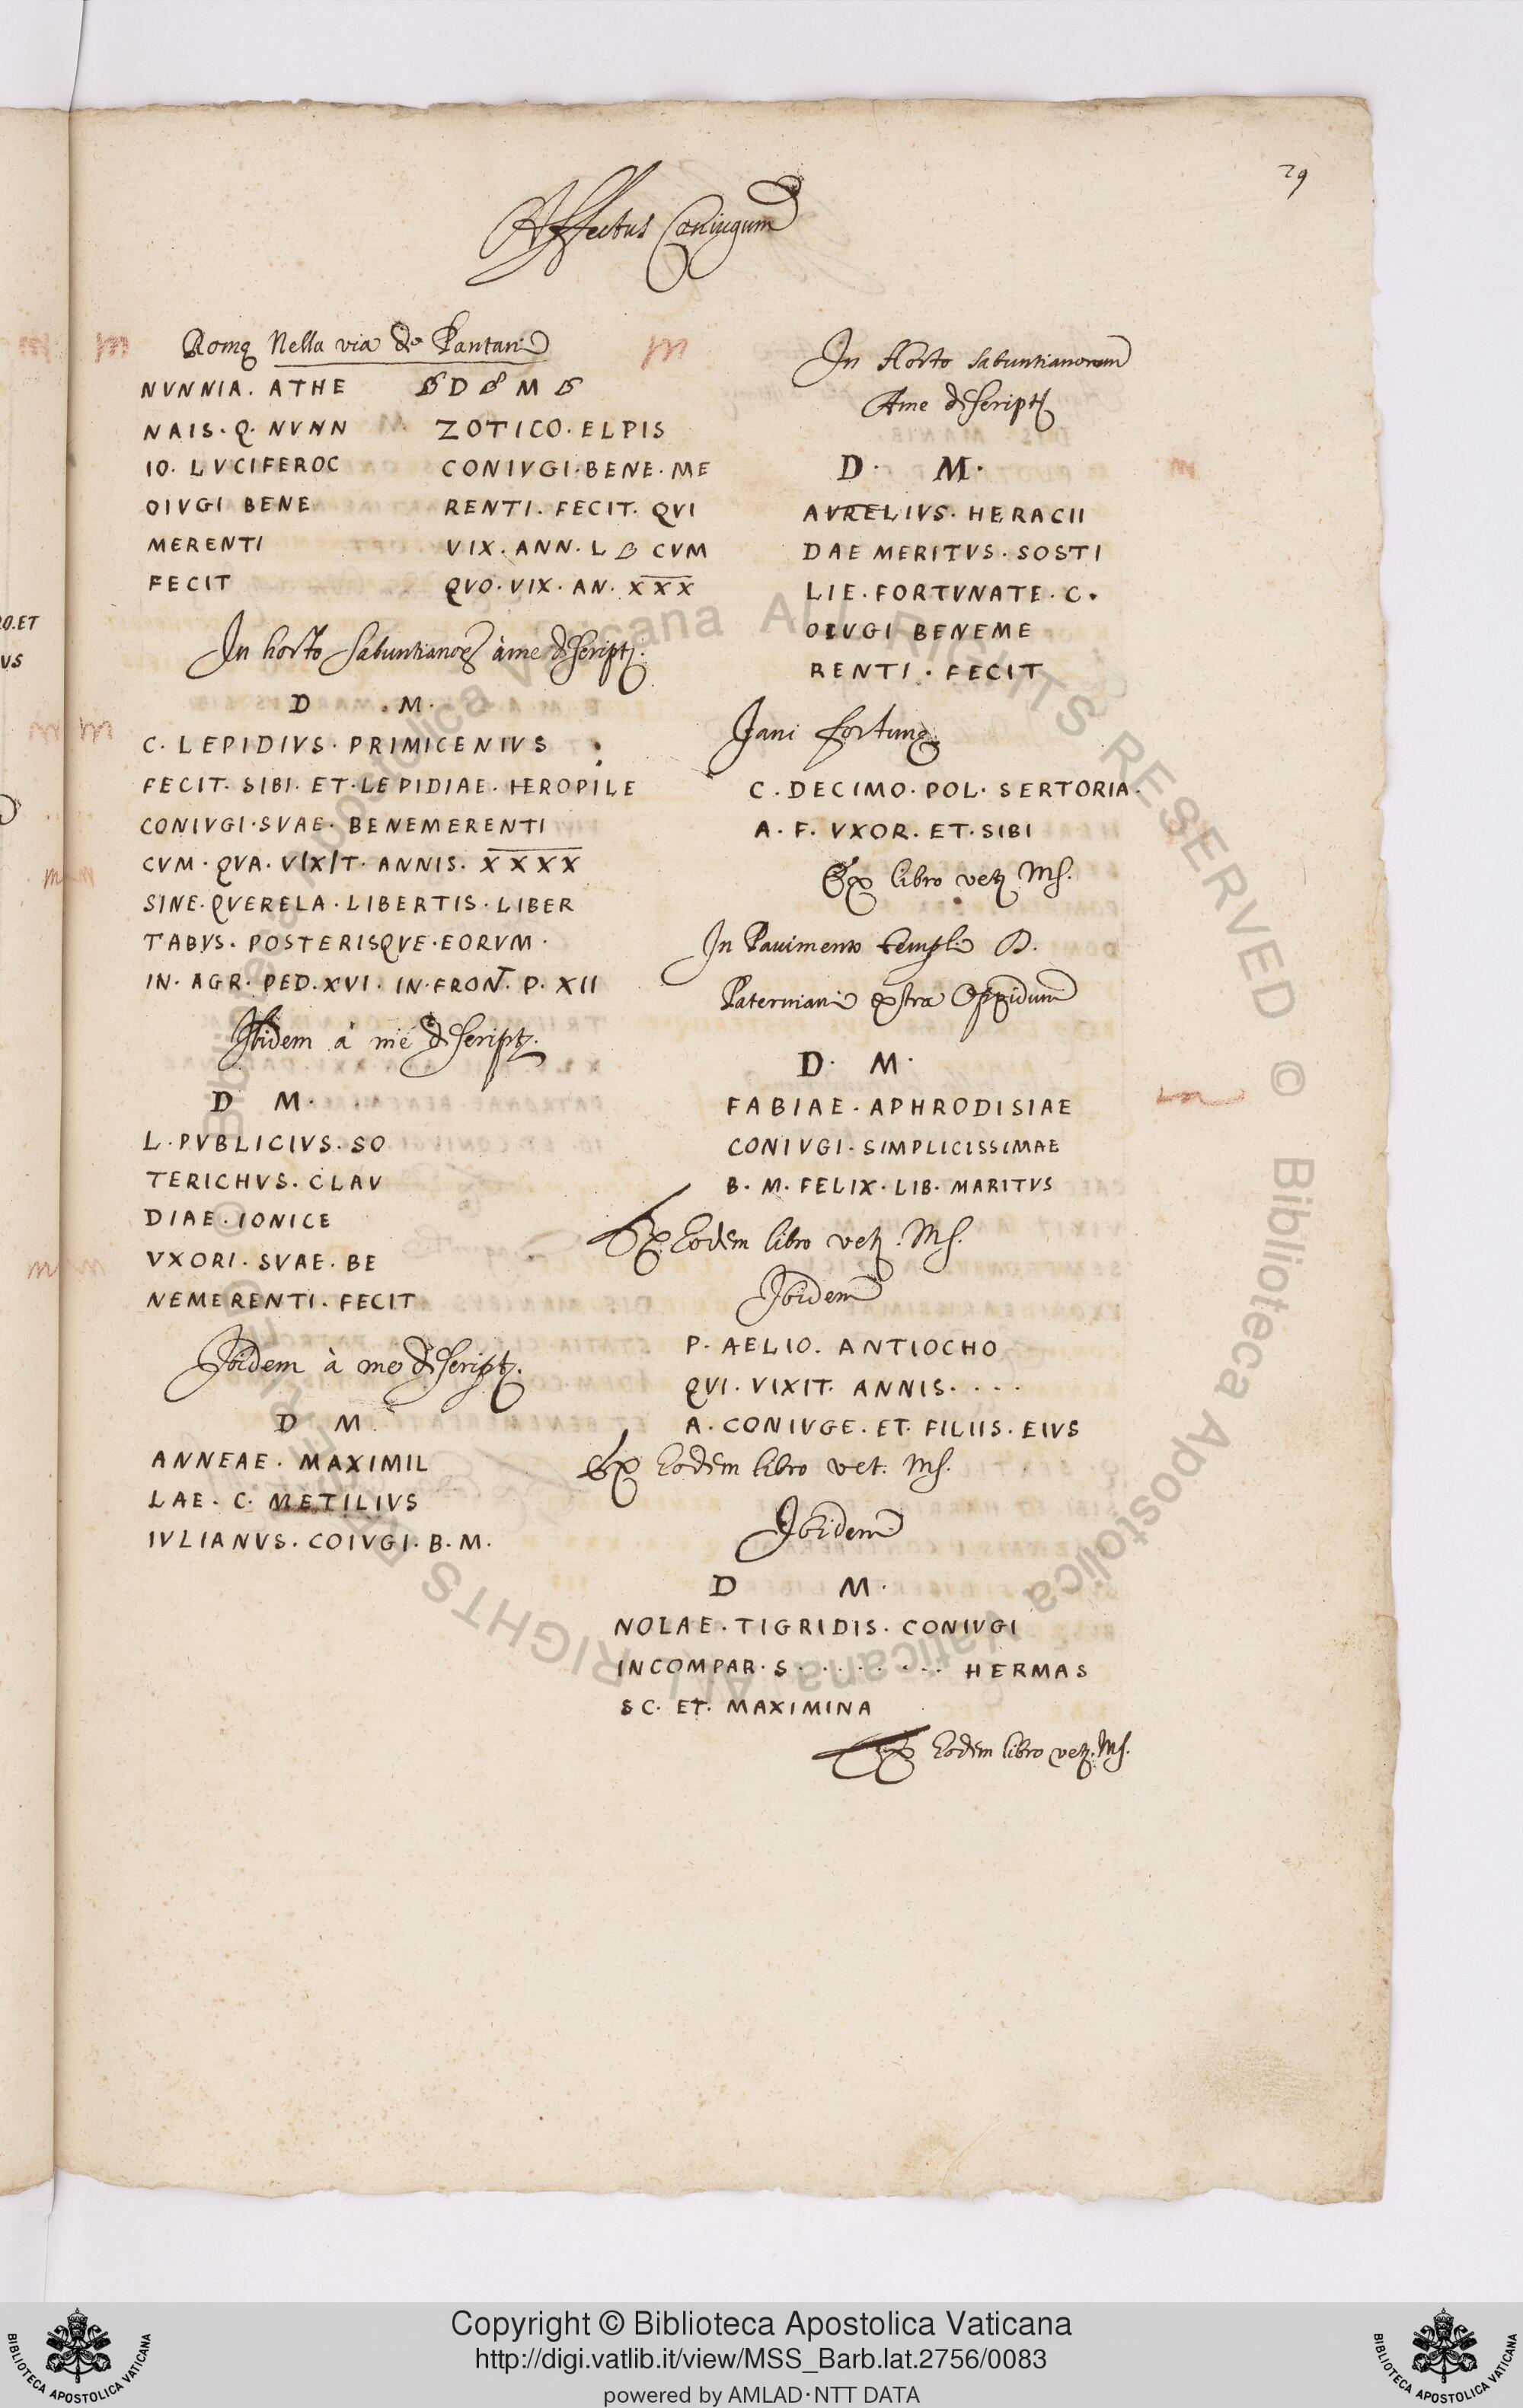 29
Affectus Coniugum
Romę Nella via de Pantani
NVNNIA. ATHE
NAIS. Q. NVNN
IO. LVCIFEROC
OIVGI BENE
MERENTI
FECIT
D M
ZOTICO. ELPIS
CONIVGI. BENE. ME
RENTI. FECIT. QVI
VIX. ANN. L CVM
QVO. VIX. AN. XXX
In horto Sabuntianoꝝ à me descript.
D . M.
C. LEPIDIVS. PRIMICENIVS
FECIT. SIBI. ET. LEPIDIAE. HEROPILE
CONIVGI. SVAE. BENEMERENTI
CVM. QVA. VIXIT. ANNIS. XXXX
SINE. QVERELA. LIBERTIS. LIBER
TABVS. POSTERISQVE. EORVM.
IN. AGR. PED. XVI. IN. FRONT. P. XII
Ibidem à me descript.
D M.
L. PVBLICIVS. SO
TERICHVS. CLAV
DIAE. IONICE
VXORI. SVAE. BE
NEMERENTI. FECIT
Ibidem à me descript.
D M.
ANNEAE. MAXIMIL
LAE. C. METILIVS
IVLIANVS. COIVGI. B. M.
In Horto Sabuntianorum
A me descript
D. M.
AVRELIVS. HERACII
DAE MERITVS. SOSTI
LIE. FORTVNATE. C.
OIVGI BENEME
RENTI. FECIT
Fani fortunę
C. DECIMO. POL. SERTORIA.
A. F. VXOR. ET. SIBI
Ex libro vet. Ms.
In Pauimento templi D.
Paterniani extra Oppidum
D. M.
FABIAE. APHRODISIAE
CONIVGI. SIMPLICISSIMAE
B. M. FELIX. LIB. MARITVS
Ex Eodem libro vet. Ms.
Ibidem
P. AELIO. ANTIOCHO
QVI. VIXIT. ANNIS. . . .
A. CONIVGE. ET. FILIIS. EIVS
Ex Eodem libro vet. Ms.
Ibidem
D M.
NOLAE. TIGRIDIS. CONIVGI
INCOMPAR. S. . . . . . . . HERMAS
SC. ET. MAXIMINA
Ex Eodem libro vet. Ms.
O.ET
VS
© Biblioteca Apostolica Vaticana ALL RIGHTS RESERVED © Biblioteca Apostolica Vaticana ALL RIGHTS RESERVED
Copyright © Biblioteca Apostolica Vaticana
http://digi.vatlib.it/view/MSS_Barb.lat.2756/0083
powered by AMLAD·NTT DATA
BIBLIOTECA APOSTOLICA VATICANA
BIBLIOTECA APOSTOLICA VATICANA